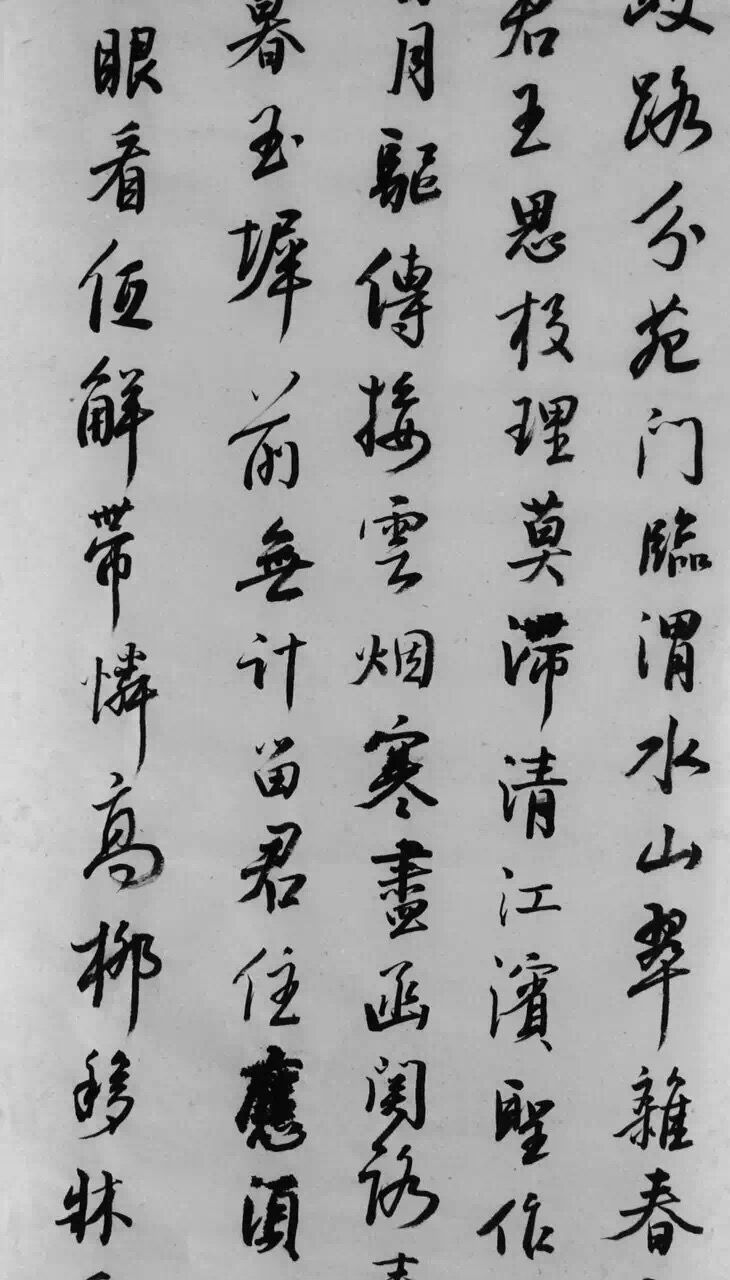 路分苑门臨渭水山翠雜春
君王思校理莫滯清江濱聖作
月驅傳接雲烟寒盡函関路
暮玉墀前無計留君住應須
眼看伍解帶憐高柳移牀